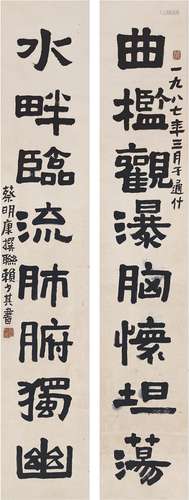 曲槛觀瀑胸懷坦蕩
一九八七年三月于通什
水畔臨流肺腑獨幽
蔡明康撰聯賴少其書